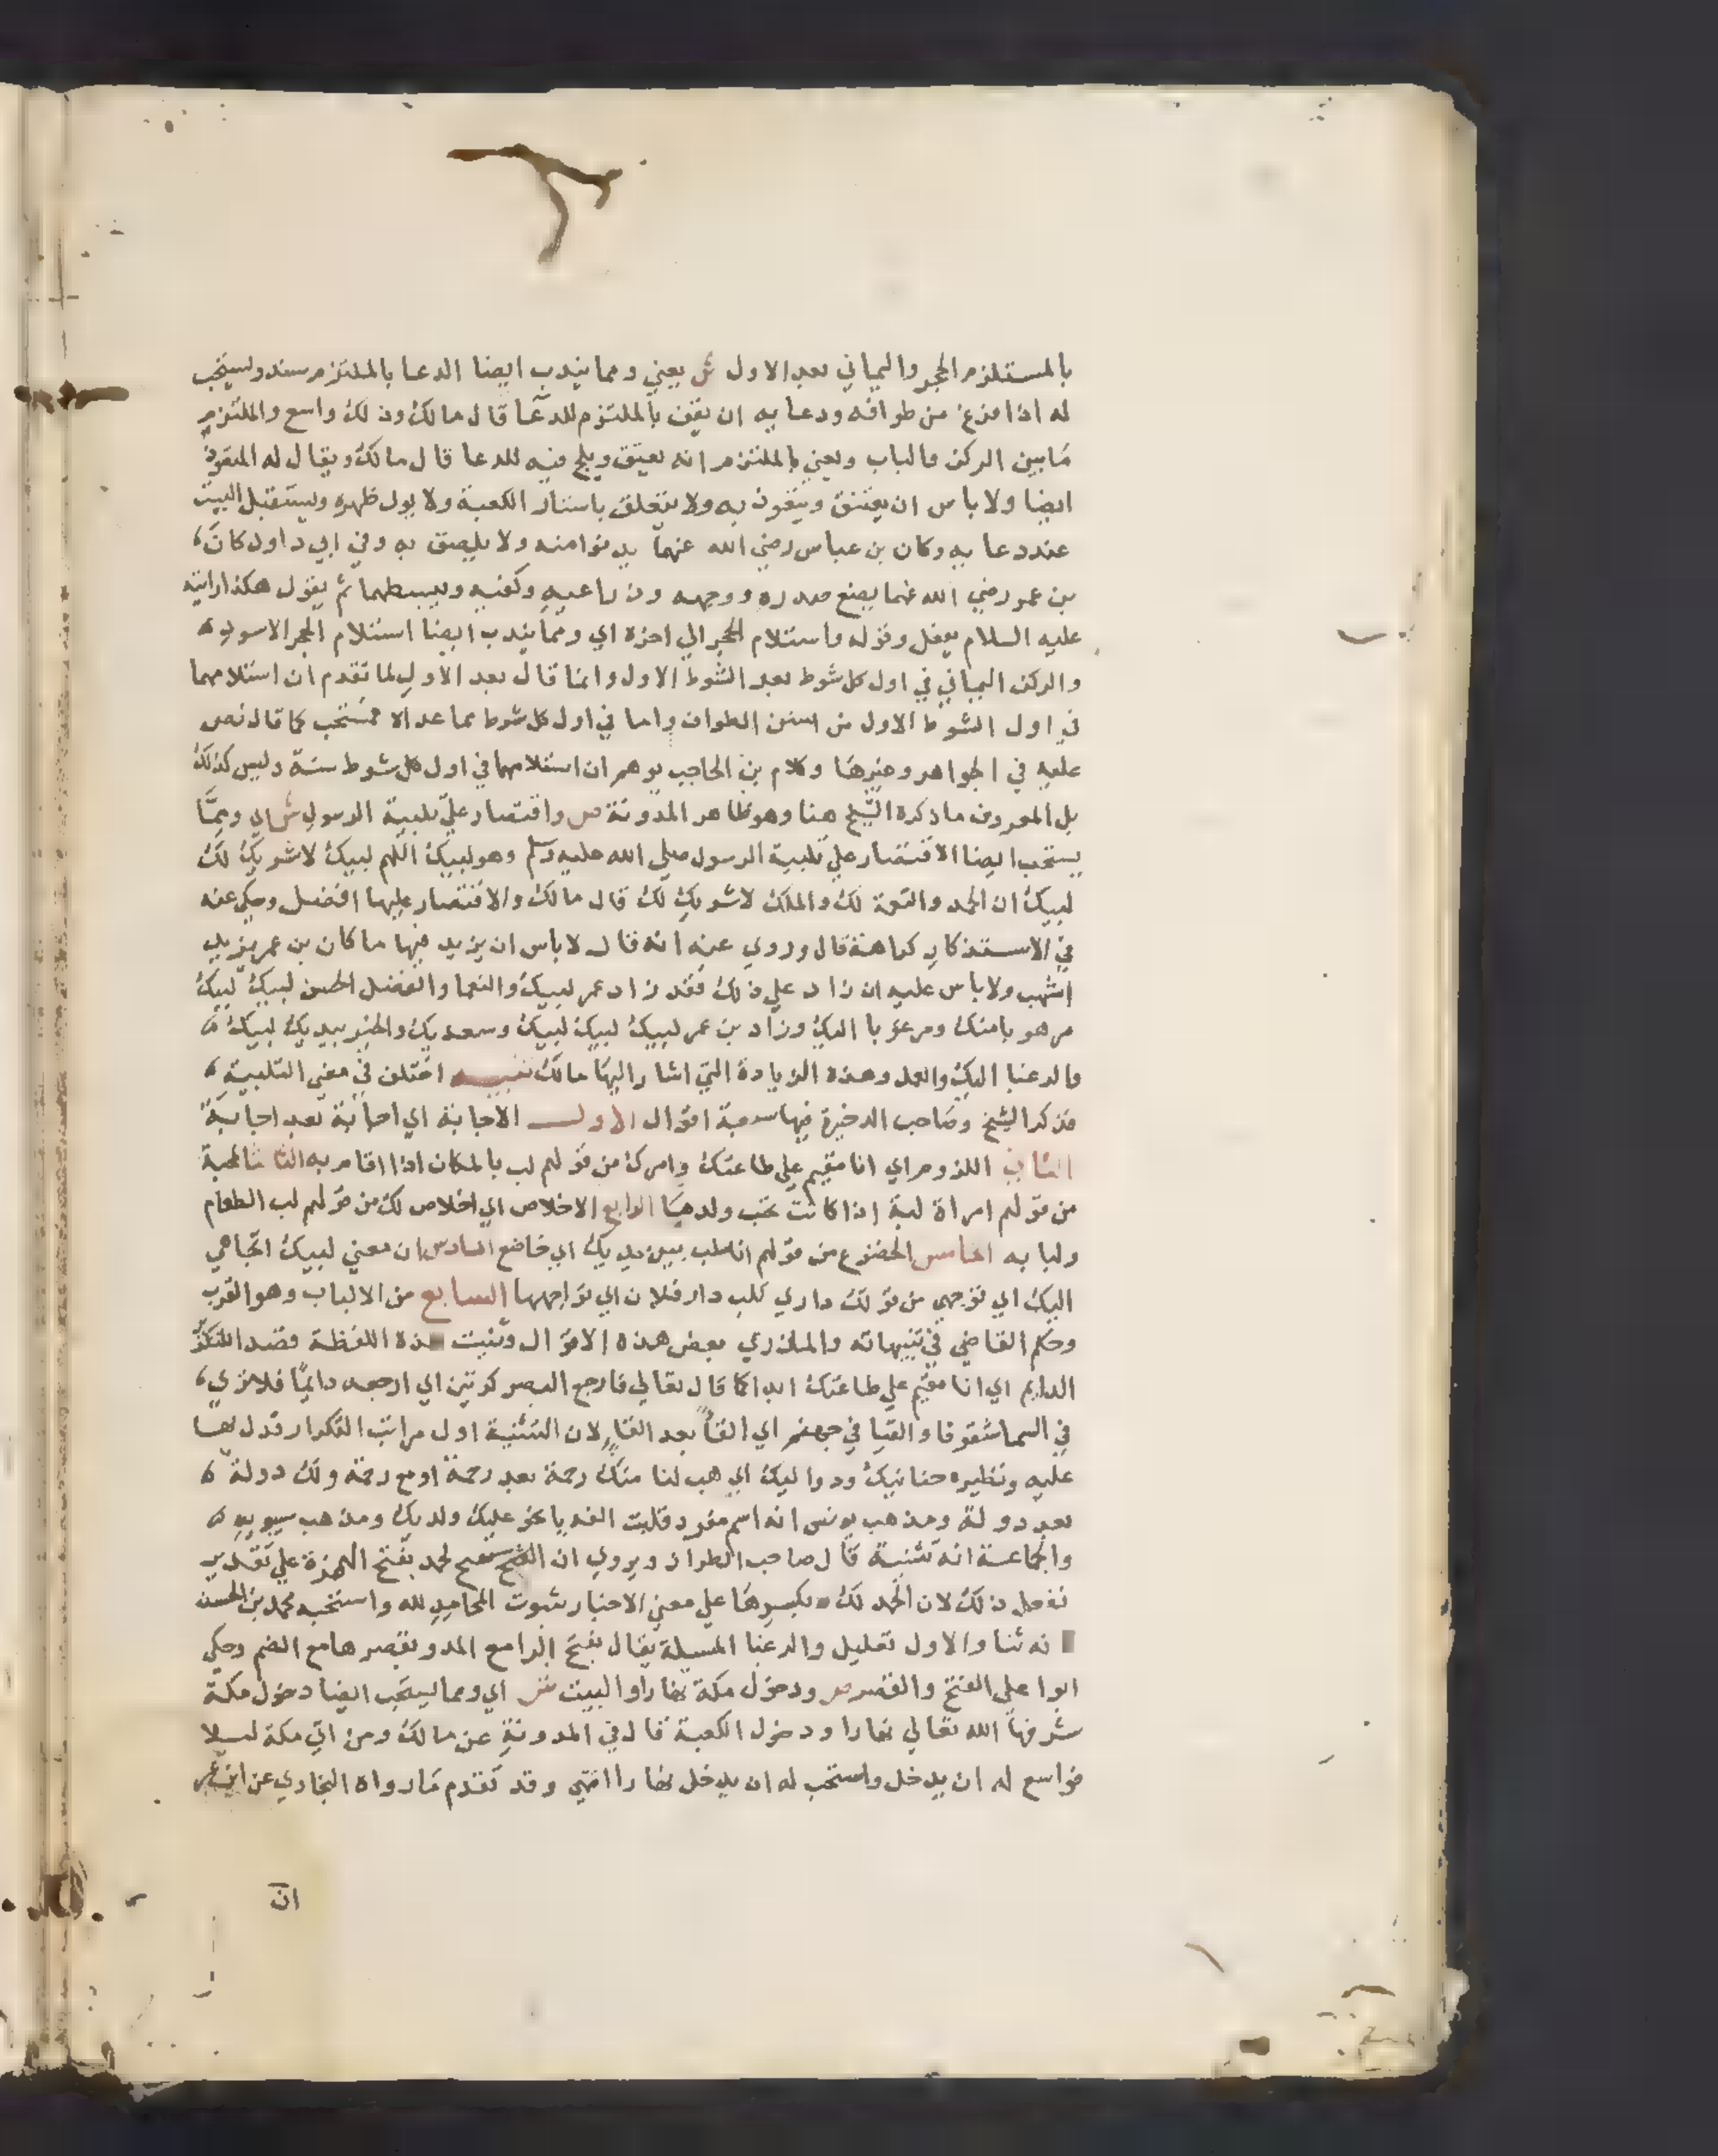 بالمستلزم الحجر واليماني بعد الاول ش يعني ومما يندب ايضا الدعا بالملتزم سند ويستحب
له اذا فرغ من طوافه ودعا به ان يقف بالملتزم للدعا قال مالك وذلك واسع والملتزم
مابين الركن والباب ويعني بالملتزم انه يعتنق ويلح فيه للدعا قال مالك ويقال له المتعوذ
ايضا ولا باس ان يعتنق ويتعوذ به ولا يتعلق باستار الكعبة ولا يول ظهره ويستقبل البيت
عند دعا به وكان بن عباس رضي الله عنهما يدنوا منه ولا يلصق به وفي ابي داود كان
بن عمر رضي الله عنهما يضع صدره ووجهه وذراعيه وكفيه ويبسطهما ثم يقول هكذا رايته
عليه السلام يفعل وقوله واستلام الحجر الي اخره اي ومما يندب ايضا استلام الحجر الاسود
والركن اليماني في اول كل شوط بعد الشوط الاول وانما قال بعد الاول لما تقدم ان استلامهما
في اول الشوط الاول من سنن الطواف واما في اول كل شوط مما عداه فمستحب كما قال نص
عليه في الجواهر وغيرها وكلام بن الحاجب يوهم ان استلامهما في اول كل شوط سنة وليس كذلك
بل المعروف ما ذكره الشيخ هنا وهو ظاهر المدونة ص واقتصار علي تلبية الرسول ش اي ومما
يستحب ايضا الاقتصار علي تلبية الرسول صلي الله عليه وسلم وهو لبيك اللهم لبيك لا شريك لك
لبيك ان الحمد والنعمة لك والملك لا شريك لك قال مالك والاقتصار عليها افضل وحكي عنه
في الاستذكار كراهة قال وروي عنه انه قال لا باس ان يزيد فيها ما كان بن عمر يزيد
اشهب ولا باس عليه ان زاد علي ذلك فقد زاد عمر لبيك والنعما والفضل الحسن لبيك لبيك
مرهوبا منك ومرغوبا اليك وزاد بن عمر لبيك لبيك لبيك وسعديك والخير بيديك لبيك
والرغبا اليك والعمل وهذه الزيادة التي اشار اليها مالك تنبيه اختلف في معني التلبية
فذكر الشيخ وصاحب الذخيرة فيها سبعة اقوال الاول الاجابة اي اجابة بعد اجابة
الثاني اللزوم اي انا مقيم علي طاعتك وامرك من قولهم لب بالمكان اذا اقام به الثالث المحبة
من قولهم امراة لبة اذا كانت تحب ولدها الرابع الاخلاص اي اخلاص لك من قولهم لب الطعام
ولبا به الخامس الخضوع من قولهم انا ملب بين يديك اي خاضع السادس ان معني لبيك اتجاهي
اليك اي توجهي من قولك داري تلب دار فلان اي تواجهها السابع من الالباب وهو القرب
وحكي القاضي في تنبيهاته والمازري بعض هذه الاقوال وثنيت هذه اللفظة قصد التكثر
الدايم اي انا مقيم علي طاعتك ابدا كما قال تعالي فارجع البصر كرتين اي ارجعه دايما فلا تري
في السما شقوقا والقيا في جهنم اي القا بعد القا لان التثنية اول مراتب التكرار فدل بها
عليه ونظيره حنانيك ودواليك اي هب لنا منك رحمة بعد رحمة او مع رحمة ولك دولة
بعد دولة ومذهب يونس انه اسم مفرد قلبت الفه يا نحو عليك ولديك ومذهب سيبويه
والجماعة انه تثنية قال صاحب الطراز ويروي ان الحمد بفتح الهمزة علي تقدير
نفعل ذلك لان الحمد لك وبكسرها علي معني الاخبار بثبوت المحامد لله واستحبه محمد بن الحسن
نه ثنا والاول تعليل والرغبا المسيلة يقال بفتح الرا مع المد وبقصرها مع الضم وحكي
ابوا علي الفتح والقصر ص ودخول مكة نهارا والبيت ش اي ومما يستحب ايضا دخول مكة
شرفها الله تعالي نهارا ودخول الكعبة قال في المدونة عن مالك ومن اتي مكة ليلا
فواسع له ان يدخل واستحب له ان يدخل نهارا انتهي وقد تقدم ما رواه البخاري عن ابن عمر
ان